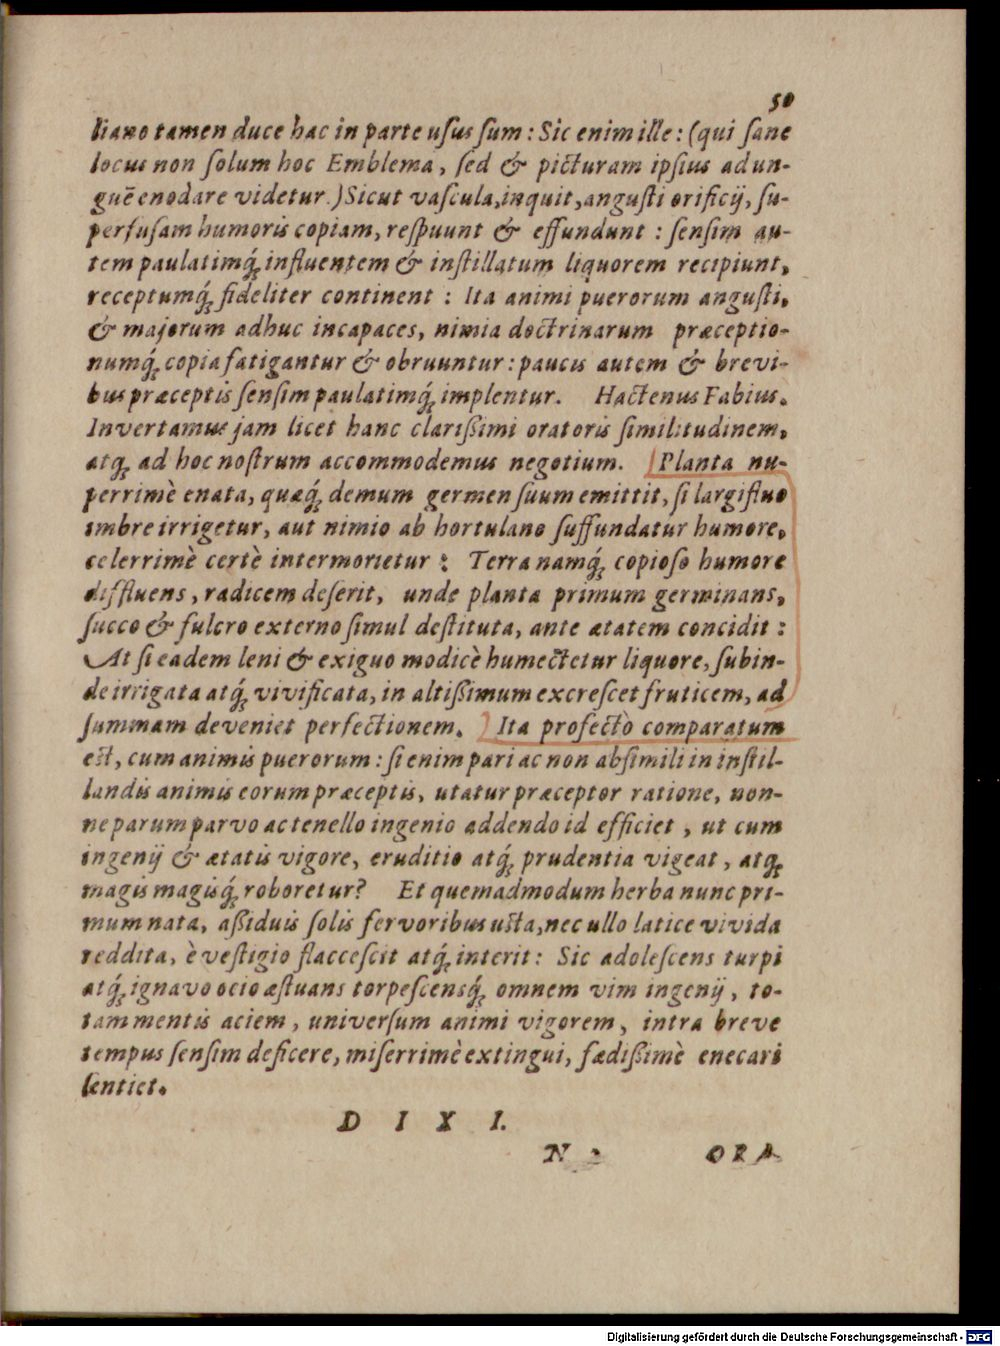 50
liano tamen duce hac in parte uſus ſum : Sic enim ille : (qui ſane
locus non ſolum hoc Emblema, ſed & picturam ipſius ad un-
guē enodare videtur.) Sicut vaſcula, inquit, anguſti orificij, ſu-
perfuſam humoris copiam, reſpuunt & effundunt : ſenſim au-
tem paulatimq́; influentem & inſtillatum liquorem recipiunt,
receptumq́; fideliter continent : Ita animi puerorum anguſti,
& majorum adhuc incapaces, nimia doctrinarum præceptio-
numq́; copia fatigantur & obruuntur : paucis autem & brevi-
bus præceptis ſenſim paulatimq́; implentur. Hactenus Fabius.
Invertamus jam licet hanc clarißimi oratoris ſimilitudinem,
atq; ad hoc noſtrum accommodemus negotium. Planta nu-
perrimè enata, quæq́; demum germen ſuum emittit, ſi largifluo
imbre irrigetur, aut nimio ab hortulano ſuffundatur humore,
celerrimè certè intermorietur : Terra namq́; copioſo humore
diffluens, radicem deſerit, unde planta primum germinans,
ſucco & fulcro externo ſimul deſtituta, ante ætatem concidit :
At ſi eadem leni & exiguo modicè humectetur liquore, ſubin-
de irrigata atq́; vivificata, in altißimum excreſcet fruticem, ad
ſummam deveniet perfectionem. Ita profectò comparatum
eſt, cum animis puerorum : ſi enim pari ac non abſimili in inſtil-
landis animis eorum præceptis, utatur præceptor ratione, non-
ne parum parvo ac tenello ingenio addendo id efficiet, ut cum
ingenij & ætatis vigore, eruditio atq́; prudentia vigeat, atq;
magis magisq́; roboretur? Et quemadmodum herba nunc pri-
mum nata, aßiduis ſolis fervoribus uſta, nec ullo latice vivida
reddita, è veſtigio flacceſcit atq́; interit : Sic adoleſcens turpi
atq́; ignavo ocio æſtuans torpeſcensq́; omnem vim ingenij, to-
tam mentis aciem, univerſum animi vigorem, intra breve
tempus ſenſim deficere, miſerrimè extingui, fædißimè enecari
ſentiet.
D I X I.
N ORA
Digitalisierung gefördert durch die Deutsche Forschungsgemeinschaft - DFG